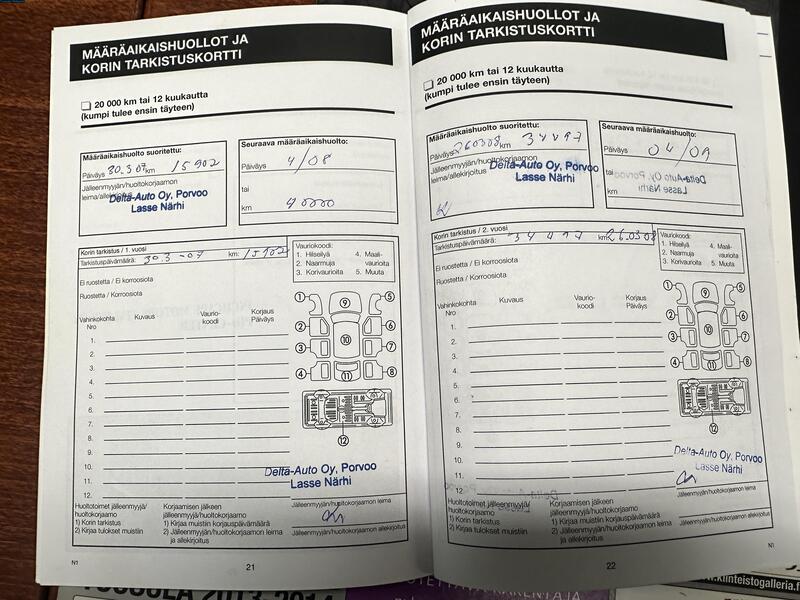 MÄÄRÄAIKAISHUOLLOT JA
KORIN TARKISTUSKORTTI
20 000 km tai 12 kuukautta
(kumpi tulee ensin täyteen)
Määräaikaishuolto suoritettu:
Päiväys 30.3 07 km 15902
Jälleenmyyjän/huoltokorjaamon
leima/allekirjoitus
Delta-Auto Oy, Porvoo
Lasse Närhi
Seuraava määräaikaishuolto:
Päiväys 4/08
tai
km 40000
Korin tarkistus / 1. vuosi
Tarkistuspäivämäärä: 30.3 -07 km: 15902
Vauriokoodi:
1. Hilseilyä 4. Maali-
2. Naarmuja vaurioita
3. Korivaurioita 5. Muuta
Ei ruostetta / Ei korroosiota
Ruostetta / Korroosiota
Vahinkokohta Kuvaus Vaurio- Korjaus
Nro koodi Päiväys
1.
2.
3.
4.
5.
6.
7.
8.
9.
10.
11.
12.
1 9 5
2 6
3 10 7
4 11 8
12
Delta-Auto Oy, Porvoo
Lasse Närhi
Jälleenmyyjän/huoltokorjaamon leima
Huoltotoimet jälleenmyyjä/
huoltokorjaamo
1) Korin tarkistus
2) Kirjaa tulokset muistiin
Korjaamisen jälkeen
jälleenmyyjä/huoltokorjaamo
1) Kirjaa muistiin korjauspäivämäärä
2) Jälleenmyyjän/huoltokorjaamon leima
ja allekirjoitus
Jälleenmyyjän/huoltokorjaamon allekirjoitus
N1
21
MÄÄRÄAIKAISHUOLLOT JA
KORIN TARKISTUSKORTTI
20 000 km tai 12 kuukautta
(kumpi tulee ensin täyteen)
Määräaikaishuolto suoritettu:
Päiväys 260308 km 34497
Jälleenmyyjän/huoltokorjaamon
leima/allekirjoitus
Delta-Auto Oy, Porvoo
Lasse Närhi
Seuraava määräaikaishuolto:
Päiväys 04/09
tai
km
Korin tarkistus / 2. vuosi
Tarkistuspäivämäärä: 34497 km: 26.0308
Vauriokoodi:
1. Hilseilyä 4. Maali-
2. Naarmuja vaurioita
3. Korivaurioita 5. Muuta
Ei ruostetta / Ei korroosiota
Ruostetta / Korroosiota
Vahinkokohta Kuvaus Vaurio- Korjaus
Nro koodi Päiväys
1.
2.
3.
4.
5.
6.
7.
8.
9.
10.
11.
12.
1 9 5
2 6
3 10 7
4 11 8
12
Delta-Auto Oy, Porvoo
Lasse Närhi
Jälleenmyyjän/huoltokorjaamon leima
Huoltotoimet jälleenmyyjä/
huoltokorjaamo
1) Korin tarkistus
2) Kirjaa tulokset muistiin
Korjaamisen jälkeen
jälleenmyyjä/huoltokorjaamo
1) Kirjaa muistiin korjauspäivämäärä
2) Jälleenmyyjän/huoltokorjaamon leima
ja allekirjoitus
Jälleenmyyjän/huoltokorjaamon allekirjoitus
22
N1